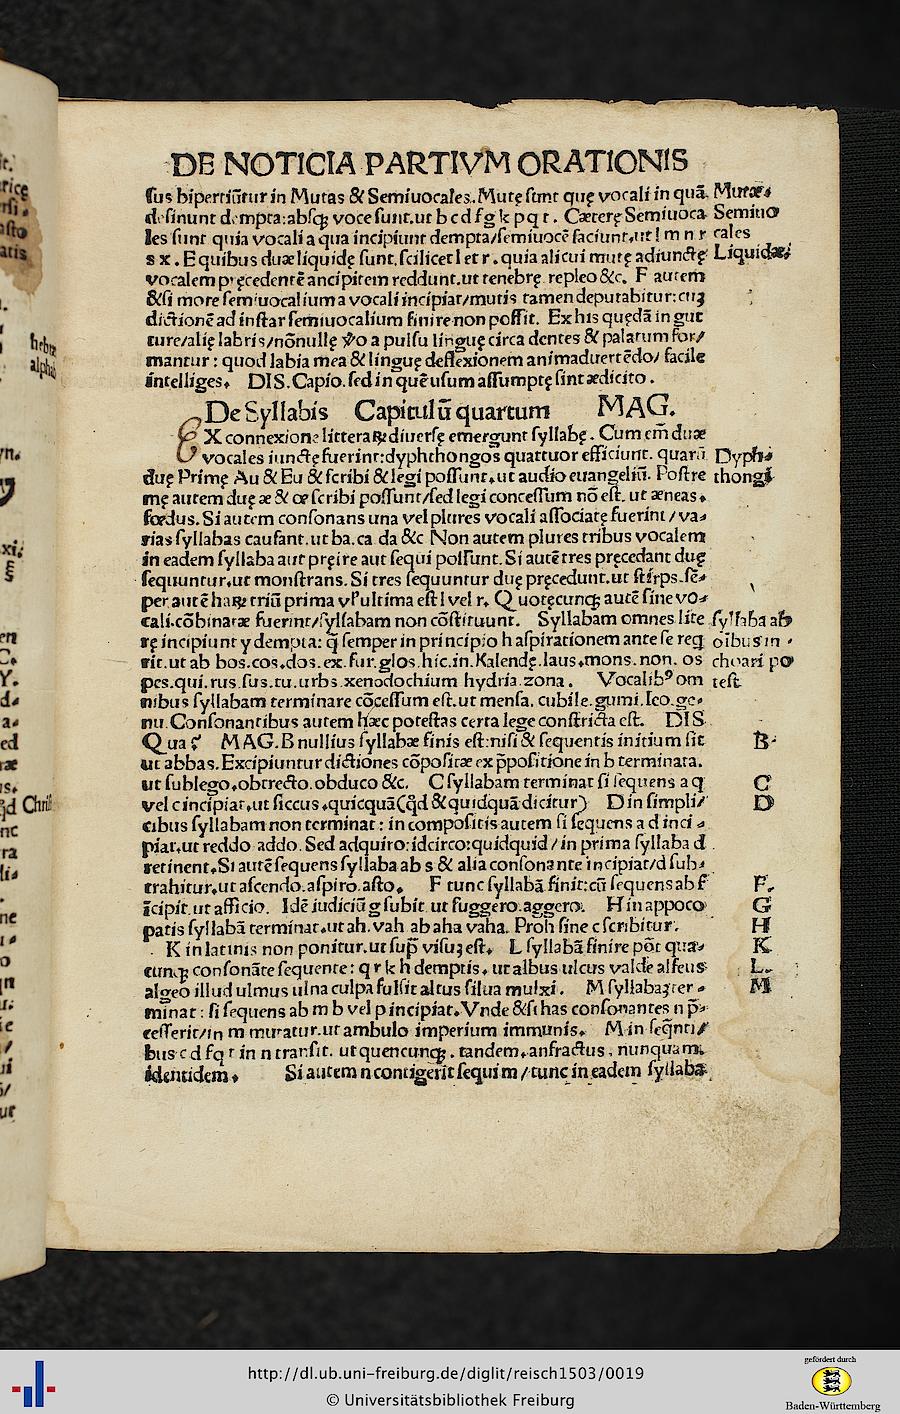 DE NOTICIA PARTIVM ORATIONIS
sus bipertiũtur in Mutas & Semiuocales. Mutę sunt quę vocali in quã
desinunt dempta: absq; voce sunt. ut b c d f g k p q t. Cæterę Semiuoca
les sunt quia vocali a qua incipiunt dempta/semiuocē faciunt, ut l m n r
s x. E quibus duæ liquidę sunt, scilicet l et r. quia alicui mutę adiunctę
vocalem pręcedentē ancipitem reddunt. ut tenebrę repleo &c. F autem
&si more semiuocalium a vocali incipiat/mutis tamen deputabitur: cuȝ
dictionē ad instar semiuocalium finire non possit. Ex his quędã in gut
ture/alię labris/nõnullę ꝟo a pulsu linguę circa dentes & palatum for/
mantur: quod labia mea & linguę deflexionem animaduertēdo/ facile
intelliges. DIS. Capio. sed in quē usum assumptę sint ædicito.
Mutæ.
Semiuo
cales
Liquidæ
De Syllabis Capitulũ quartum MAG.
EX connexione litteraꝝ diuersę emergunt syllabę. Cum em̃ duæ
vocales iunctę fuerint: dyphthongos quattuor efficiunt. quarũ
duę Primę Au & Eu & scribi & legi possunt, ut audio euangeliũ. Postre
mę autem duę æ & œ scribi possunt/sed legi concessum nõ est. ut æneas.
fœdus. Si autem consonans una vel plures vocali associatę fuerint/va-
rias syllabas causant. ut ba. ca. da &c Non autem plures tribus vocalem
in eadem syllaba aut pręire aut sequi possunt. Si autē tres pręcedant duę
sequuntur, ut monstrans. Si tres sequuntur duę pręcedunt. ut stirps. sē-
per autē haꝝ triũ prima vl' ultima est l vel r. Quotęcunq; autē sine vo-
cali cõbinatæ fuerint/syllabam non cõstituunt. Syllabam omnes litte
rę incipiunt y dempta: q̃ semper in principio h aspirationem ante se req
rit. ut ab bos. cos. dos. ex. fur. glos. hic. in. Kalendę. laus. mons. non. os
pes. qui. rus. sus. tu. urbs. xenodochium hydria. zona. Vocalibꝰ om
nibus syllabam terminare cõcessum est. ut mensa. cubile. gumi. leo. ge-
nu. Consonantibus autem hæc potestas certa lege constricta est. DIS
Qua? MAG. B nullius syllabæ finis est: nisi & sequentis initium sit
ut abbas. Excipiuntur dictiones cõpositæ ex p̃positione in b terminata.
ut sublego. obtrecto. obduco &c. C syllabam terminat si sequens a q
vel c incipiat, ut siccus. quicquã (qd & quidquã dicitur) D in simpli/
cibus syllabam non terminat: in compositis autem si sequens a d inci-
piat. ut reddo addo. Sed adquiro: idcirco: quidquid/in prima syllaba d
retinent. Si autē sequens syllaba ab s & alia consonante incipiat/d sub-
trahitur. ut ascendo. aspiro. asto. F tunc syllabã finit: cũ sequens ab f
ĩcipit. ut afficio. Idē iudiciũ g subit. ut suggero. aggero. H in appoco
patis syllabã terminat. ut ah. vah ab aha vaha. Proh sine c scribitur.
K in latinis non ponitur. ut sup̃ visuȝ est. L syllabã finire põt qua-
cunq; consonãte sequente: q r k h demptis. ut albus ulcus valde alfeus
algeo illud ulmus ulna culpa fulsit altus silua mulxi. M syllabaȝ ter-
minat: si sequens ab m b vel p incipiat. Vnde &si has consonantes n p̃-
cesserit/in m mutatur. ut ambulo imperium immunis. M in seq̃nti/
bus c d f q t in n transit. ut quencunq;. tandem. anfractus. nunquam.
identidem. Si autem n contigerit sequi m/tunc in eadem syllaba
Dyph-
thongi
syllaba ab
oĩbus in-
choari po
test
B
C
D
F.
G
H
K
L.
M
hebre
alpha
http://dl.ub.uni-freiburg.de/diglit/reisch1503/0019
© Universitätsbibliothek Freiburg
gefördert durch
Baden-Württemberg